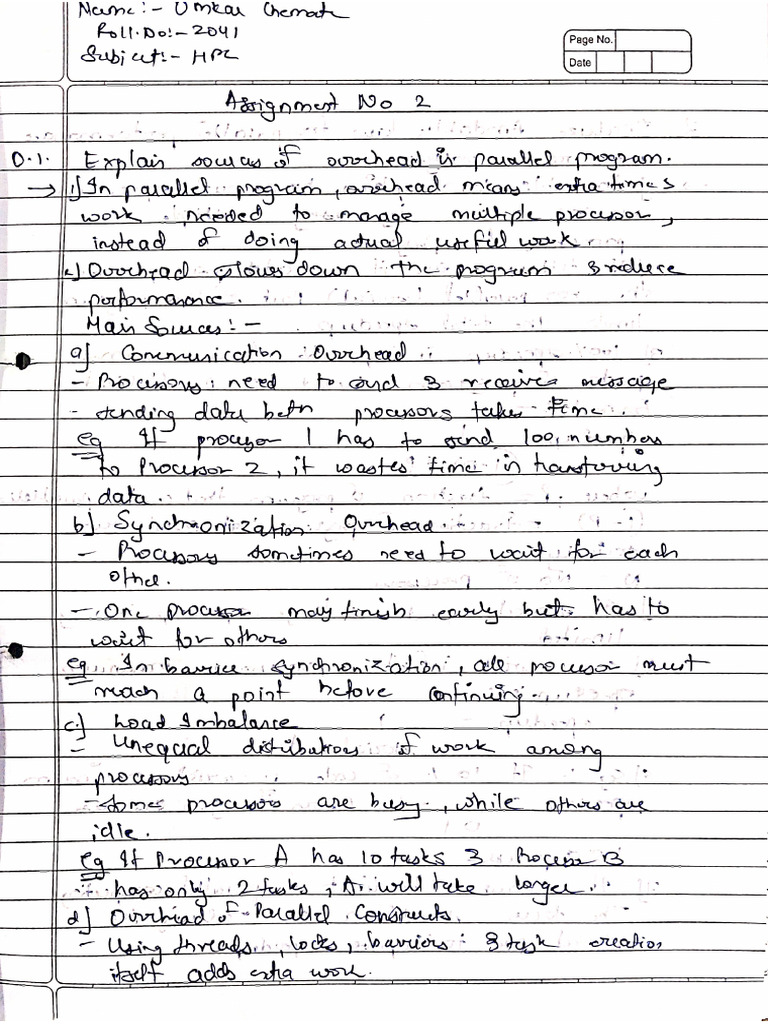 Name:- Omkar Chemate
Roll.No:- 2041
Subject:- HPC
Page No.
Date
Assignment No 2
Q.1. Explain sources of overhead in parallel program.
→ 1) In parallel program, overhead means extra times
work needed to manage multiple processor,
instead of doing actual useful work.
2) Overhead slows down the program & reduce
performance.
Main Sources:-
a] Communication Overhead
- Processors need to send & receive message
- sending data betn processors takes time.
eg If processor 1 has to send 100 numbers
to Processor 2, it wastes time in transferring
data.
b] Synchronization Overhead.
- Processors sometimes need to wait for each
other.
- One processor may finish early but has to
wait for others
eg In barrier synchronization, all processor must
reach a point before continuing.
c.] Load Imbalance
- Unequal distribution of work among
processors
- Some processors are busy, while others are
idle.
eg If Processor A has 10 tasks & Processor B
has only 2 tasks, A will take longer.
d] Overhead of Parallel Constructs.
- Using threads, locks, barriers & task creation
itself adds extra work.